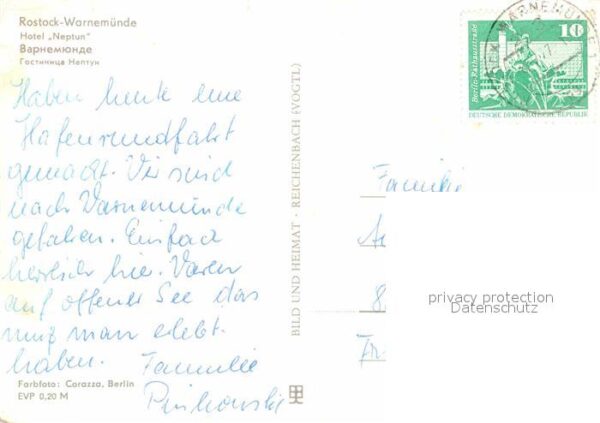 Rostock-Warnemünde
Hotel „Neptun"
Варнемюнде
Гостиница Нептун
Haben heute eine
Hafenrundfahrt
gemacht. Wir sind
nach Warnemünde
gefahren. Einfach
herrlich hier. Waren
auf offener See das
muß man erlebt
haben.
Familie
Farbfoto: Carazza, Berlin
EVP 0,20 M
BILD UND HEIMAT · REICHENBACH (VOGTL)
10
Berlin-Rathausstraße
DEUTSCHE DEMOKRATISCHE REPUBLIK
WARNEMÜNDE
Familie
8
privacy protection
Datenschutz